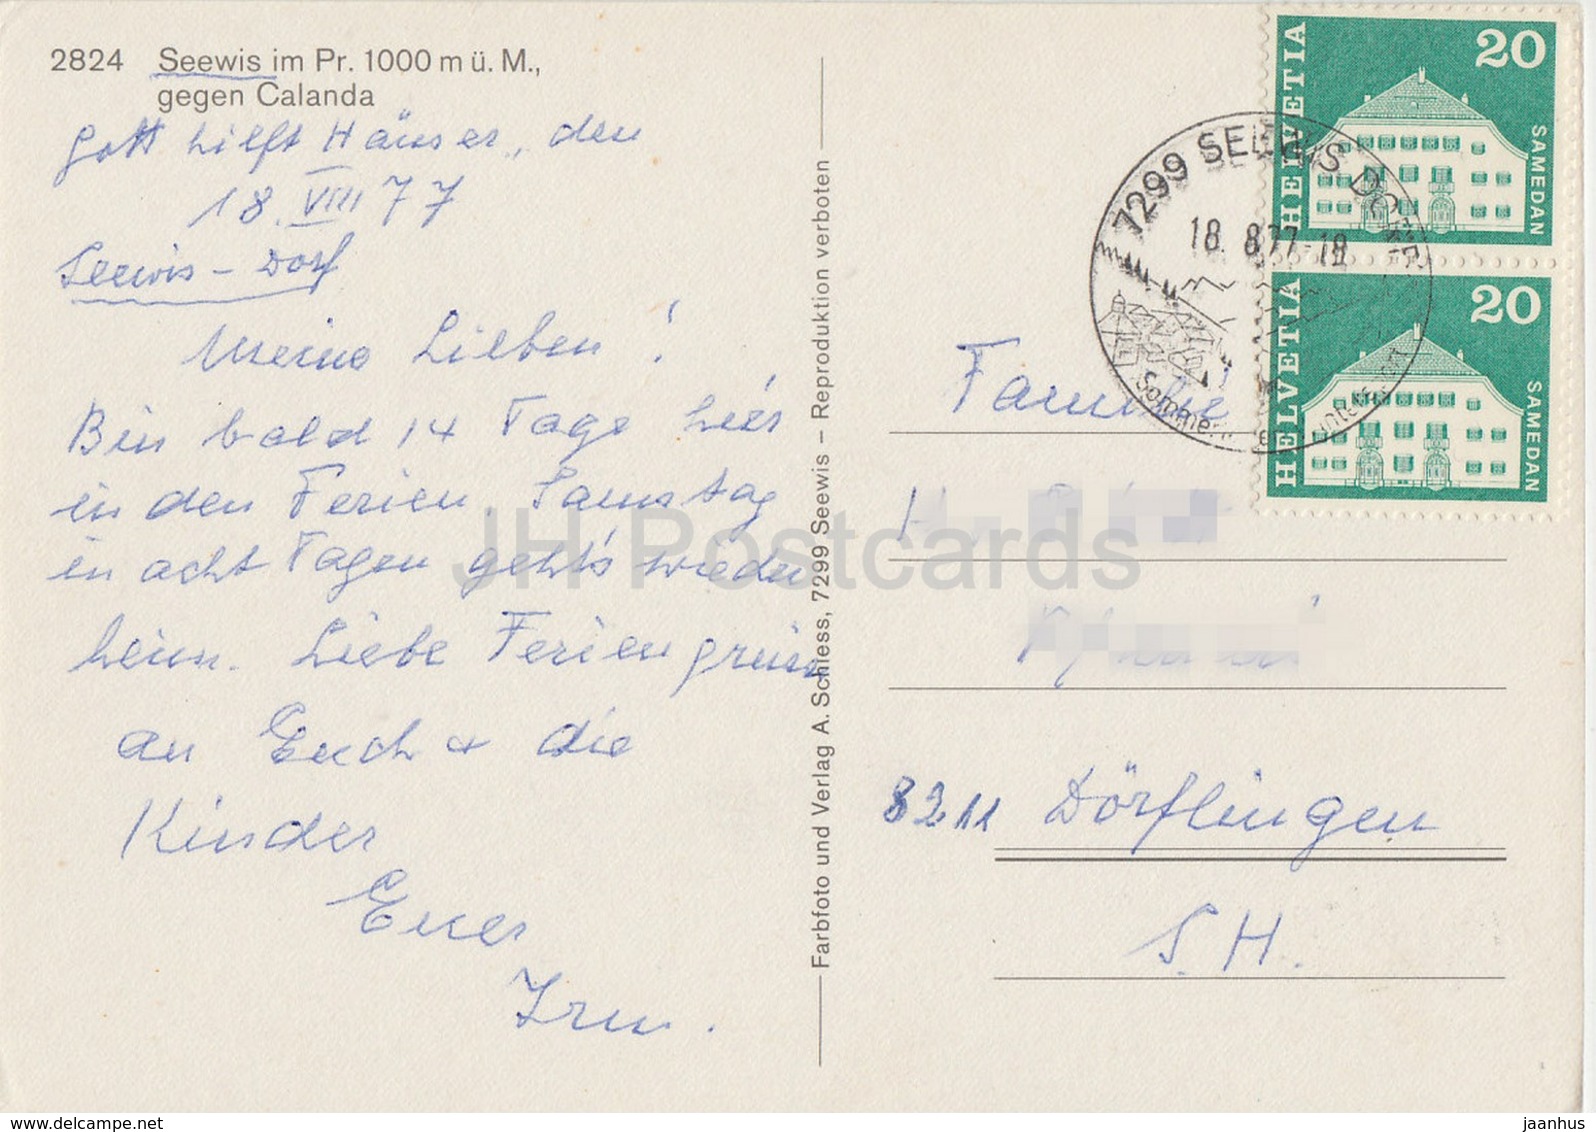 2824 Seewis im Pr. 1000 m ü. M.,
gegen Calanda
Gott hilft Häuser, den
18. VIII 77
Seewis - Dorf
Meine Lieben!
Bin bald 14 Tage hier
in den Ferien. Samstag
in acht Tagen geht's wieder
heim. Liebe Feriengrüsse
an Euch + die
Kinder
Euer
Irm.
Farbfoto und Verlag A. Schiess, 7299 Seewis – Reproduktion verboten
HELVETIA 20 SAMEDAN
HELVETIA 20 SAMEDAN
7299 SEEWIS DORF
18. 8.77-18
Familie
H.
8211 Dörflingen
S.H.
JH Postcards
jaanhus